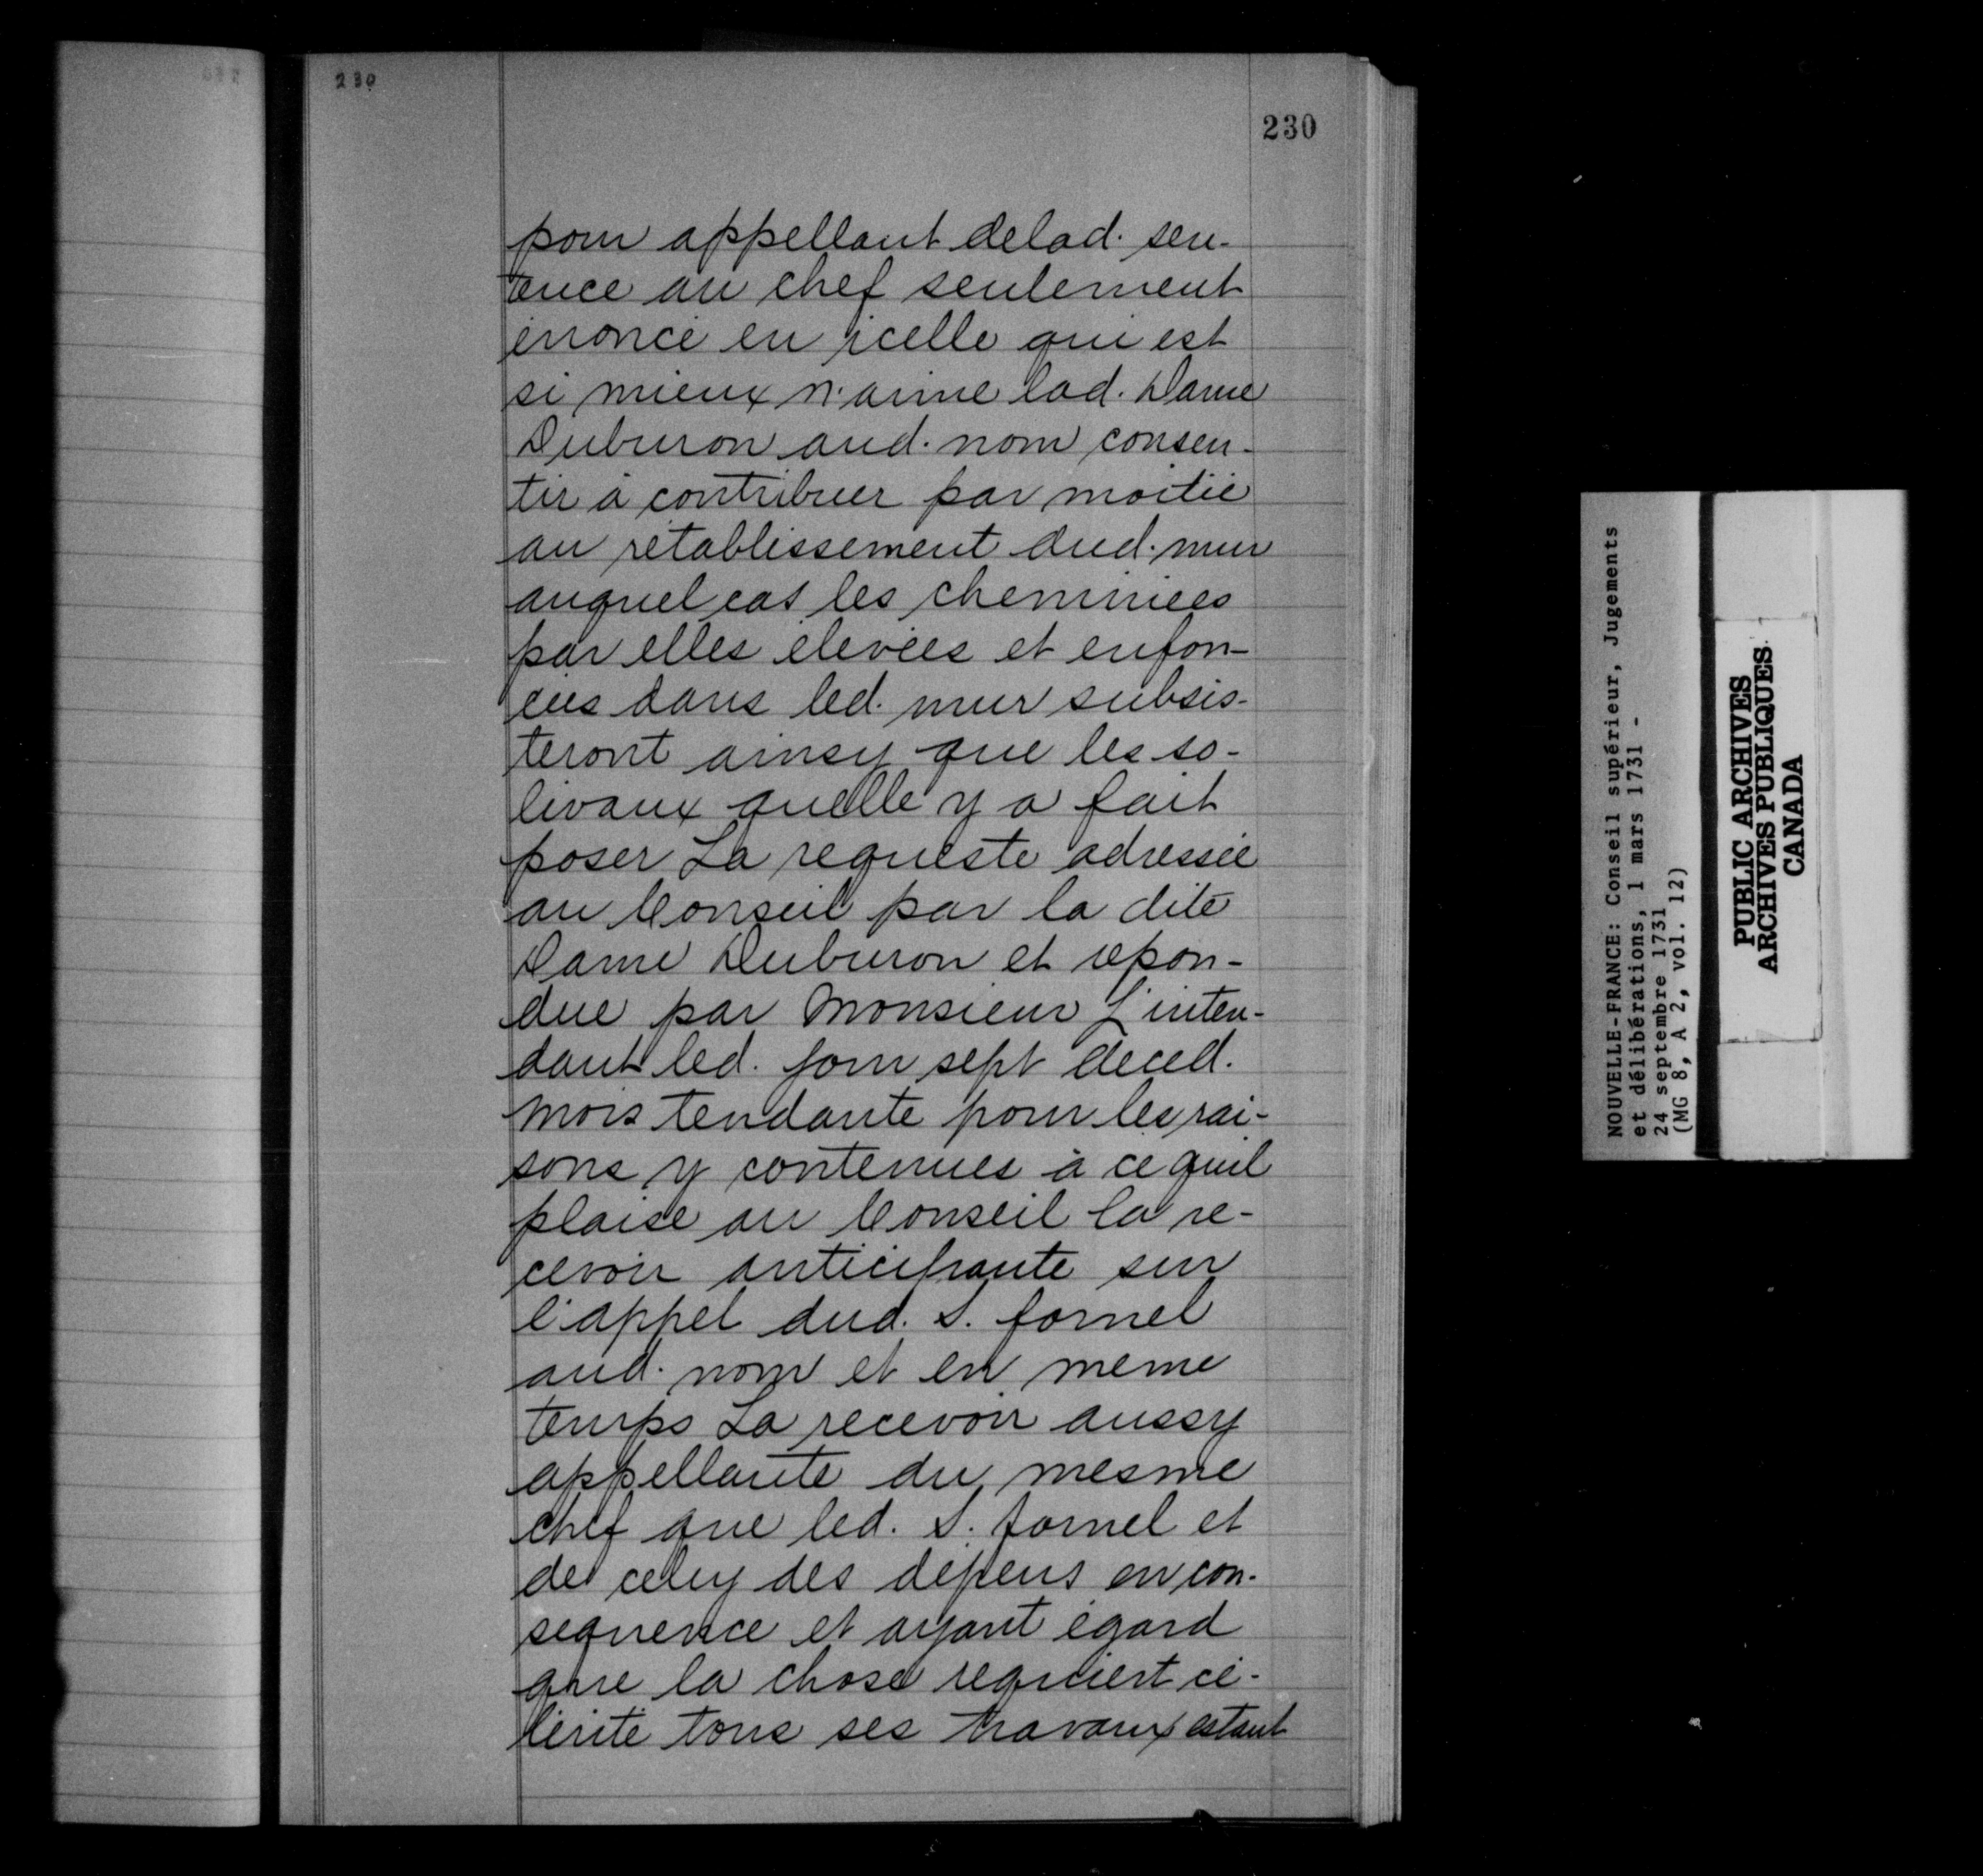 230
230
pour appellant delad. sen-
tence au chef seulement
énoncé en icelle qui est
si mieux n'aime lad. Dame
Duburon aud. nom consen-
tir à contribuer par moitié
au rétablissement dud. mur
auquel cas les cheminées
par elles élevées et enfon-
cées dans led. mur subsis-
teront ainsy que les so-
livaux quelle y a fait
poser La requeste adressée
au Conseil par la dite
Dame Duburon et repon-
due par Monsieur L'inten-
dant led. jour sept deced.
mois tendante pour les rai-
sons y contenues à ce quil
plaise au Conseil la re-
cevoir anticipante sur
l'appel dud. S. fornel
aud. nom et en meme
temps La recevoir aussy
appellante du mesme
chef que led. S. fornel et
de celuy des dépens en con-
sequence et ayant égard
que la chose requiert cé-
lérité tous ses travaux estant
NOUVELLE-FRANCE: Conseil supérieur, Jugements
et délibérations, 1 mars 1731 -
24 septembre 1731
(MG 8, A 2, vol. 12)
PUBLIC ARCHIVES
ARCHIVES PUBLIQUES
CANADA